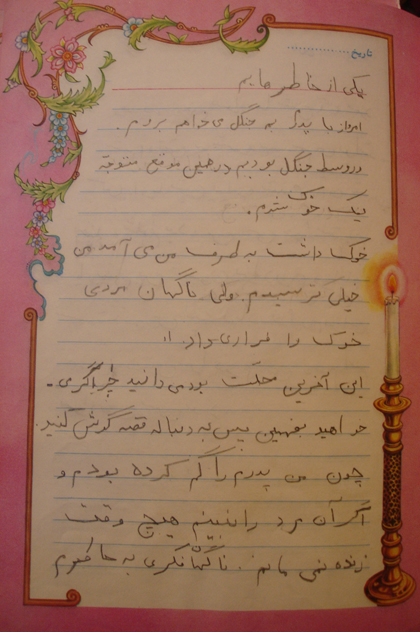 تاریخ ............
یکی از خاطر هایم
امروز با پدرم به جنگل می خواهم بروم.
در وسط جنگل بودیم در همین موقع متوجه
یک خوک شدم.
خوک داشت به طرف من می آمد من
خیلی ترسیدم. ولی ناگهان مردی
خوک را فراری داد.
این آخرین مهلت بود می دانید چرا اگر می-
خواهید بفهمین پس به دنباله قصه گوش کنید.
چون من پدرم را گم کرده بودم و
اگر آن مرد را نبینم هیچ وقت
زنده نمی مانم. ناگهان فکری به خاطرم